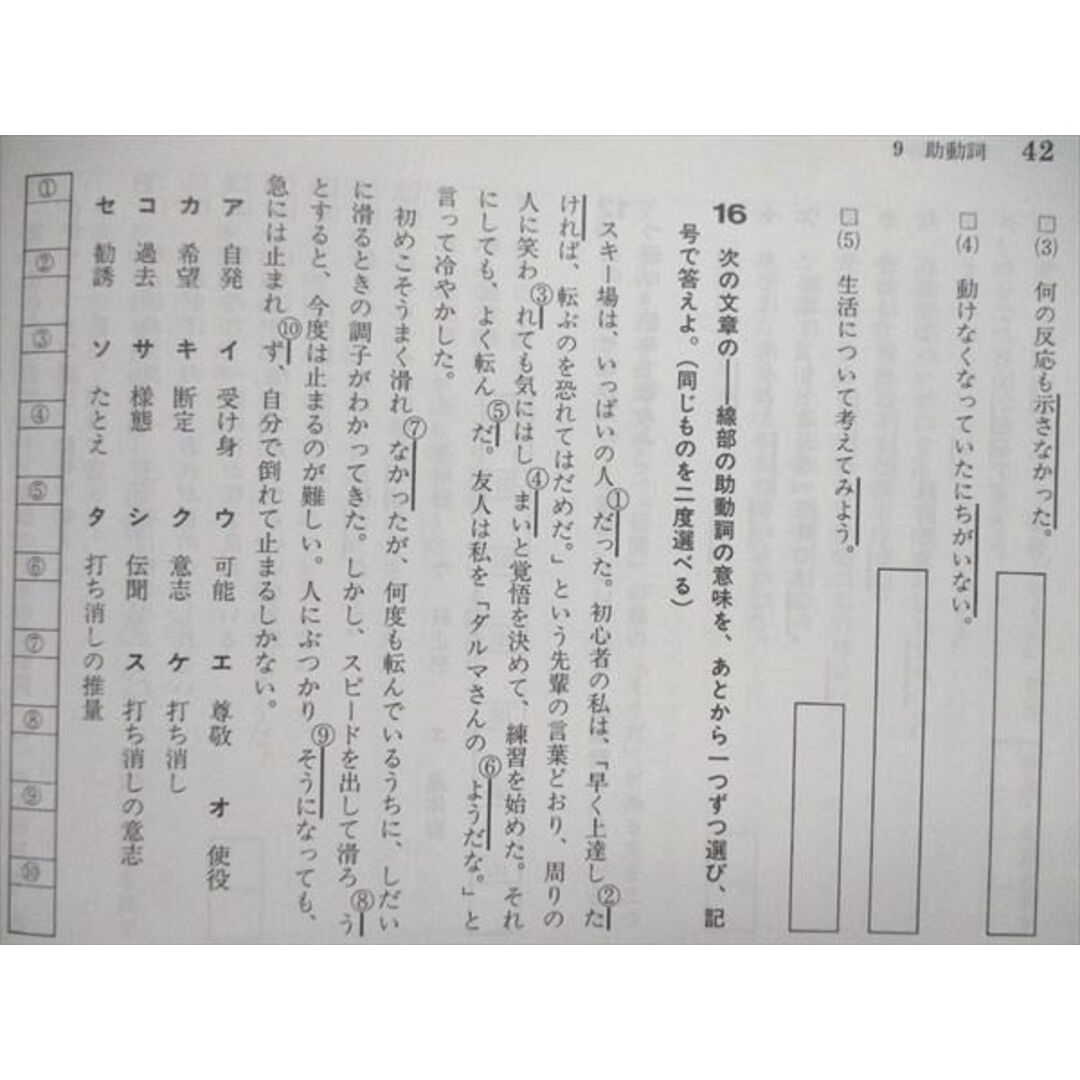 9 助動詞 42
□(3) 何の反応も示さなかった。
□(4) 動けなくなっていたにちがいない。
□(5) 生活について考えてみよう。
16 次の文章の――線部の助動詞の意味を、あとから一つずつ選び、記
号で答えよ。(同じものを二度選べる)
スキー場は、いっぱいの人①だった。初心者の私は、「早く上達し②た
ければ、転ぶのを恐れてはだめだ。」という先輩の言葉どおり、周りの
人に笑わ③れても気にはし④まいと覚悟を決めて、練習を始めた。それ
にしても、よく転ん⑤だ。友人は私を「ダルマさんの⑥ようだな。」と
言って冷やかした。
初めこそうまく滑れ⑦なかったが、何度も転んでいるうちに、しだい
に滑るときの調子がわかってきた。しかし、スピードを出して滑ろ⑧う
とすると、今度は止まるのが難しい。人にぶつかり⑨そうになっても、
急には止まれ⑩ず、自分で倒れて止まるしかない。
ア 自発 イ 受け身 ウ 可能 エ 尊敬 オ 使役
カ 希望 キ 断定 ク 意志 ケ 打ち消し
コ 過去 サ 様態 シ 伝聞 ス 打ち消しの意志
セ 勧誘 ソ たとえ タ 打ち消しの推量
① ② ③ ④ ⑤ ⑥ ⑦ ⑧ ⑨ ⑩